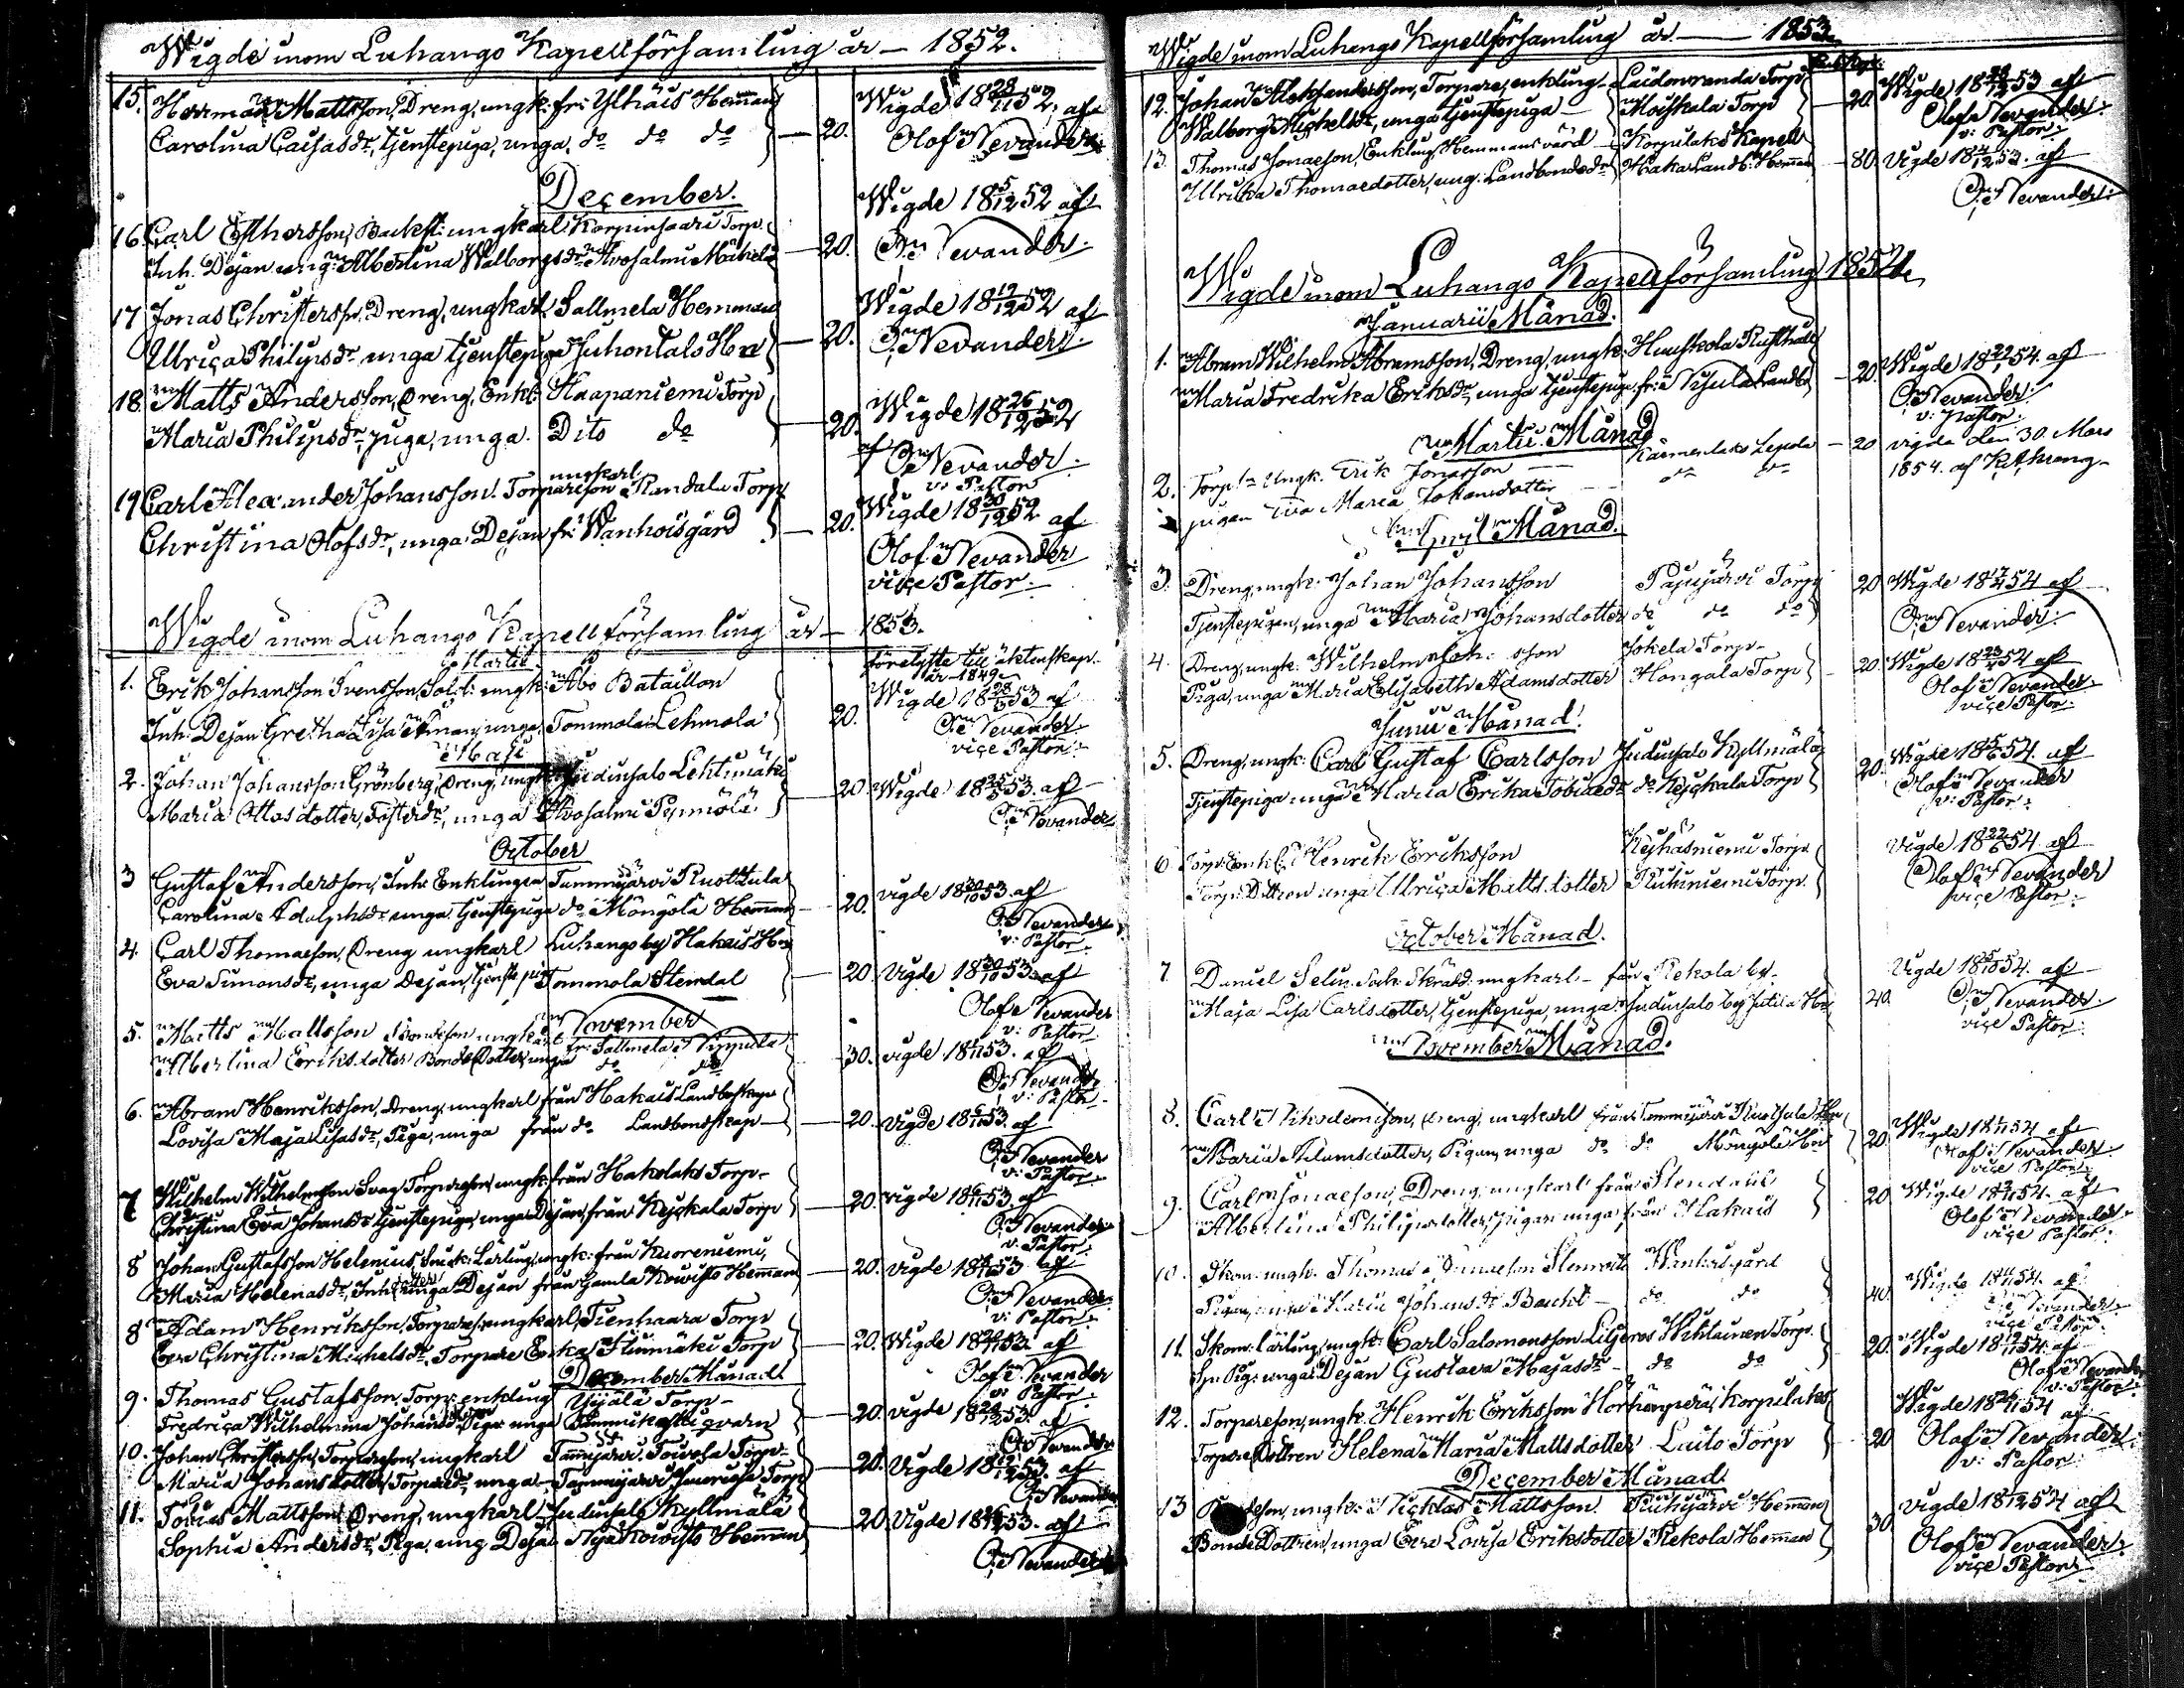 Wigde inom Luhango Kapellförsamling år — 1852.
15. Herrman Mattsson, Dreng, ungk: fr: Ylhäis Hemman
Carolina Caisasdr, tjenstepiga, unga. do do do — 20.
Wigde 18 28/11 52, af
Olof Nevander
December.
16. Carl Esthersson, ungkarl Korpinsaari Torp.
Inh. Dejan ung: Albertina Walborgsdr — 20.
Wigde 18 5/12 52 af
O. Nevander.
17 Jonas Christersson, Dreng, ungkarl Sallmela Hemman
Ulrica Philipsdr unga tjenstepiga Juhontalo — 20.
Wigde 18 19/12 52 af
O. Nevander.
18. Matts Andersson, Dreng, Enkl: Haapaniemi Torp
Maria Philipsdr, piga, unga. Dito do — 20.
Wigde 18 26/12 52
af O. Nevander.
v: Pastor
19 Carl Alexander Johansson. Torpareson ungkarl Randala Torp
Christina Olofsdr, unga Dejan fr: Wanhoisgård — 20.
Wigde 18 30/12 52 af
Olof Nevander
vice Pastor.
Wigde inom Luhango Kapellförsamling år — 1853.
Martii
1. Erik Johansson Svensson, Sold: ungk: Åbo Bataillon
Inh. Dejan Gretha Lisa unga, Tommola Lehmola 20.
förelyste till äktenskap
år 1849.
Wigde 18 28/3 53 af
O. Nevander.
vice Pastor.
Maji
2. Johan Johansson Grönberg, Dreng, ungk: Judinsalo Lehtimäki
Maria Ottosdotter, Fosterdr, unga — 20
Wigde 18 25/5 53. af
O. Nevander
October
3 Gustaf Andersson, Inh: Enklingen Tammijärvi Rusttula
Carolina Adolphsdr unga tjenstepiga do Möngölä Hemman — 20.
vigde 18 30/10 53 af
O. Nevander
v: Pastor.
4. Carl Thomasson, Dreng ungkarl Luhango by Hakais
Eva Simonsdr, unga Dejan, tjenstepiga Tommola Stendal — 20
Vigde 18 30/10 53 af
Olof Nevander
v: Pastor.
November
5. Matts Mattsson Bondeson ungkarl fr: Sallmela
Albertina Eriksdotter Bonde Dotter, unga do do 30.
vigde 18 53. af
O. Nevander
v: Pastor.
6. Abram Henriksson, Dreng, ungkarl från Hakais Landboskap
Lovisa Maja Lisasdr, Piga, unga från do Landbondskap — 20
vigde 18 6/11 53 af
O. Nevander
v: Pastor.
7 Wilhelm Wilhelmsson Svag Torpareson, ungk: från Hakolaks Torp
Christina Eva Johansdr tjenstepiga, unga Dejan, från Keijskala Torp — 20
vigde 18 6/11 53 af
O. Nevander
v: Pastor.
8 Johan Gustafsson Helenius, Lärling, ungk: från Kuoreniemi,
Maria Helenasdr, Inh: dotter unga Dejan från Gamla Kowisto Hemman — 20.
vigde 18 53 af
O. Nevander
v: Pastor.
8 Adam Henriksson, Torpare, ungkarl, Tienhaara Torp
Eva Christina Michelsdr, Torpare Enka Torp — 20.
Wigde 18 53. af
Olof Nevander
v: Pastor
December Månad.
9. Thomas Gustafsson, Torp: enkling Yijälä Torp
Fredrica Wilhelmina Johansdr Piga unga Tammikoski qvarn — 20.
vigde 18 53. af
O. Nevander
10. Johan Christersson, Torpareson, ungkarl Tammijärvi Torp
Maria Johansdotter, Torparedr, unga Tammijärvi Torp — 20.
Vigde 18 53. af
O. Nevander
11. Tobias Mattsson, Dreng, ungkarl Judinsalo Kyllmälä
Sophia Andersdr, Piga, ung Dejan Nya Kowisto Hemman — 20.
Vigde 18 53. af
O. Nevander
Wigde inom Luhango Kapellförsamling år — 1853
12. Johan Alexandersson, Torpare, enkling Laidonranda Torp
Walborg Michelsdr, unga tjenstepiga Moiskala Torp — 20.
Wigde 18 53 af
Olof Nevander
v: Pastor.
13. Thomas Jonaeson, Enkling, Hemmansvärd Korpilaks Kapell
Ulrika Thomaedotter, ung: Landbondedr Haka Landb: Hemman — 80.
Vigde 18 4/12 53. af
O. Nevander.
Wigde inom Luhango Kapellförsamling 1854.
Januarii Månad.
1. Abram Wilhelm Abramsson, Dreng, ungk: Rusthåll
Maria Fredrika Eriksdr, unga tjenstepiga, fr: Landb. — 20.
Wigde 18 22/1 54. af
O. Nevander.
v: Pastor.
Martii Månad
2. Torp:n Ungk. Erik Jonasson Lepola — 20
pigan Eva Maria Johansdotter do do
vigde den 30. Mars
1854. af
April Månad.
3. Dreng, ungk: Johan Johansson Papijärvi Torp
Tjenstepigan, unga Maria Johansdotter do do do 20
Wigde 18 54 af
O. Nevander.
4. Dreng, ungk: Wilhelm Joh: sson Jokela Torp
Piga, unga Maria Elisabeth Adamsdotter Hongala Torp — 20.
Wigde 18 23/4 54 af
Olof Nevander
vice Pastor.
Junii Månad.
5. Dreng, ungk: Carl Gustaf Carlsson Judinsalo Kyllmälä
Tjenstepiga unga Maria Erika Tobiaedr do Keijskala Torp 20.
Wigde 18 5/6 54. af
Olof Nevander
v: Pastor.
6. Torp: Enkl: Henrik Eriksson Keihäsniemi Torp.
Torp: Dottren unga Ulrica Mattsdotter Torp.
Vigde 18 22/6 54. af
Olof Nevander
vice Pastor.
October Månad.
7 Daniel Selin Sock: Skräd: ungkarl från Rekola by.
Maja Lisa Carlsdotter, tjenstepiga, unga Judinsalo by 40
Vigde 18 54. af
O. Nevander.
vice Pastor.
November Månad.
8. Carl Nikodemison, Dreng, ungkarl från Tammijärvi
Maria Adamsdotter, Pigan, unga do do Möngölä 20
Wigde 18 54 af
Olof Nevander
vice Pastor.
9. Carl Jonaeson, Dreng, ungkarl från Stendal
Albertina Philipsdotter, Pigan unga från Hakais 20
Wigde 18 54. af
Olof Nevander
vice Pastor.
10. Skom: ungk: Thomas Stenroth Wanhoisgård
Pigan, unga Maria Johansdr do do 40
Wigde 18 54. af
O. Nevander
vice Pastor.
11. Skom: lärling, ungk: Carl Salomonsson Liljeroos Wihlainen Torp.
Pig: unga Dejan Gustava Majasdr do do 20.
Wigde 18 54. af
Olof Nevander
v: Pastor.
12. Torpareson, ungk: Henrik Eriksson Korpilaks
Torpare Dottren Helena Maria Mattsdotter Luito Torp 20
Wigde 18 26/11 54 af
Olof Nevander
v: Pastor.
December Månad.
13 ungk: Nicklas Mattsson Hemman
Bonde Dottren, unga Eva Lovisa Eriksdotter Rekola Hemman 30
Vigde 18 54 af
Olof Nevander
vice Pastor.